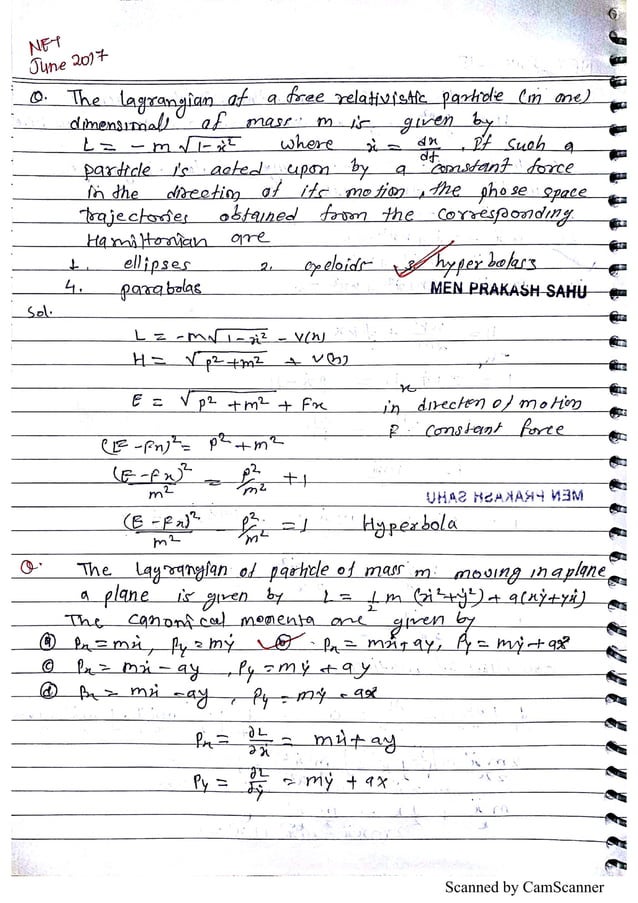 6
NET
June 2017
Q. The lagrangian of a free relativistic particle (in one)
dimensional of mass m is given by
L = - m √1-ẋ² where ẋ = dx/dt . If such a
particle is acted upon by a constant force
in the direction of its motion, the phase space
trajectories obtained from the corresponding
Hamiltonian are
1. ellipses 2. cycloids 3. hyperbolas
4. parabolas MEN PRAKASH SAHU
Sol.
L = -m√1-ẋ² - V(x)
H = √p²+m² + V(x)
E = √p²+m² + Fx x in direction of motion
F constant force
(E-Fx)² = p²+m²
(E-Fx)²/m² = p²/m² +1
MEN PRAKASH SAHU
(E-Fx)²/m² - p²/m² = 1 Hyperbola
Q. The Lagrangian of particle of mass m moving in a plane
a plane is given by L = 1/2 m (ẋ²+ẏ²) + a(xẏ+yẋ)
The canonical momenta are given by
(a) Px = mẋ, Py = mẏ (b) Px = mẋ+ay, Py = mẏ+ax
(c) Px = mẋ-ay, Py = mẏ+ay
(d) Px = mẋ-ay, Py = mẏ-ax
Px = ∂L/∂ẋ = mẋ+ay
Py = ∂L/∂ẏ = mẏ+ax
Scanned by CamScanner